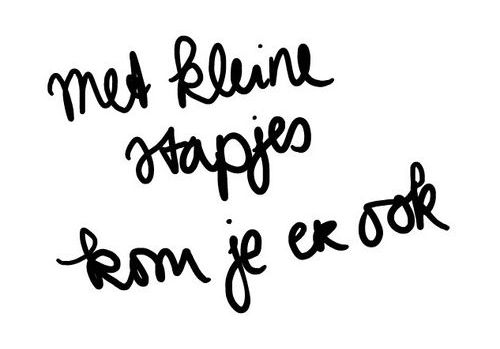 met kleine
stapjes
kom je er ook